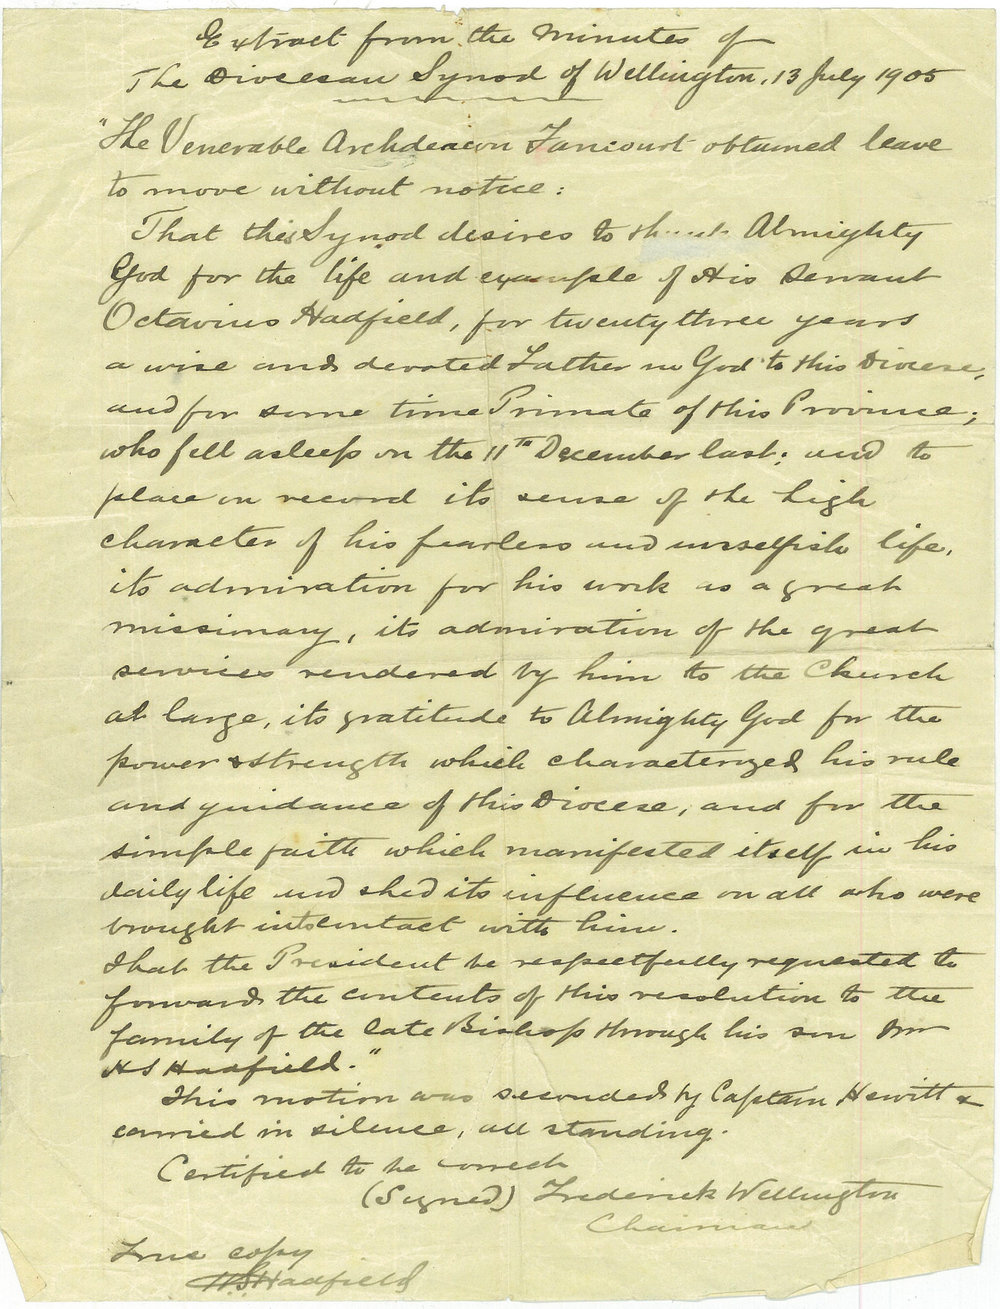 Extract from the Minutes of
The Diocesan Synod of Wellington, 13 July 1905
"The Venerable Archdeacon Fancourt obtained leave
to move without notice:
That this Synod desires to thank Almighty
God for the life and example of His Servant
Octavius Hadfield, for twenty three years
a wise and devoted Father in God to this Diocese,
and for some time Primate of this Province;
who fell asleep on the 11th December last; and to
place on record its sense of the high
character of his fearless and unselfish life,
its admiration for his work as a great
missionary, its admiration of the great
services rendered by him to the Church
at large, its gratitude to Almighty God for the
power & strength which characterized his rule
and guidance of this Diocese, and for the
simple faith which manifested itself in his
daily life and shed its influence on all who were
brought into contact with him.
That the President be respectfully requested to
forward the contents of this resolution to the
family of the late Bishop through his son Mr
H S Hadfield."
This motion was seconded by Captain Hewitt &
carried in silence, all standing.
Certified to be correct
(Signed) Frederick Wellington
Chairman
True copy
H S Hadfield